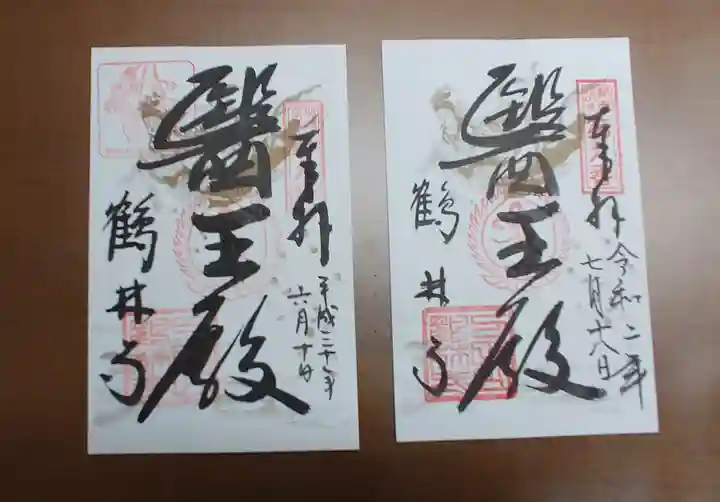 奉拝
平成二十年
六月十日
醫王殿
鶴林寺
奉拝
令和二年
七月十八日
醫王殿
鶴林寺